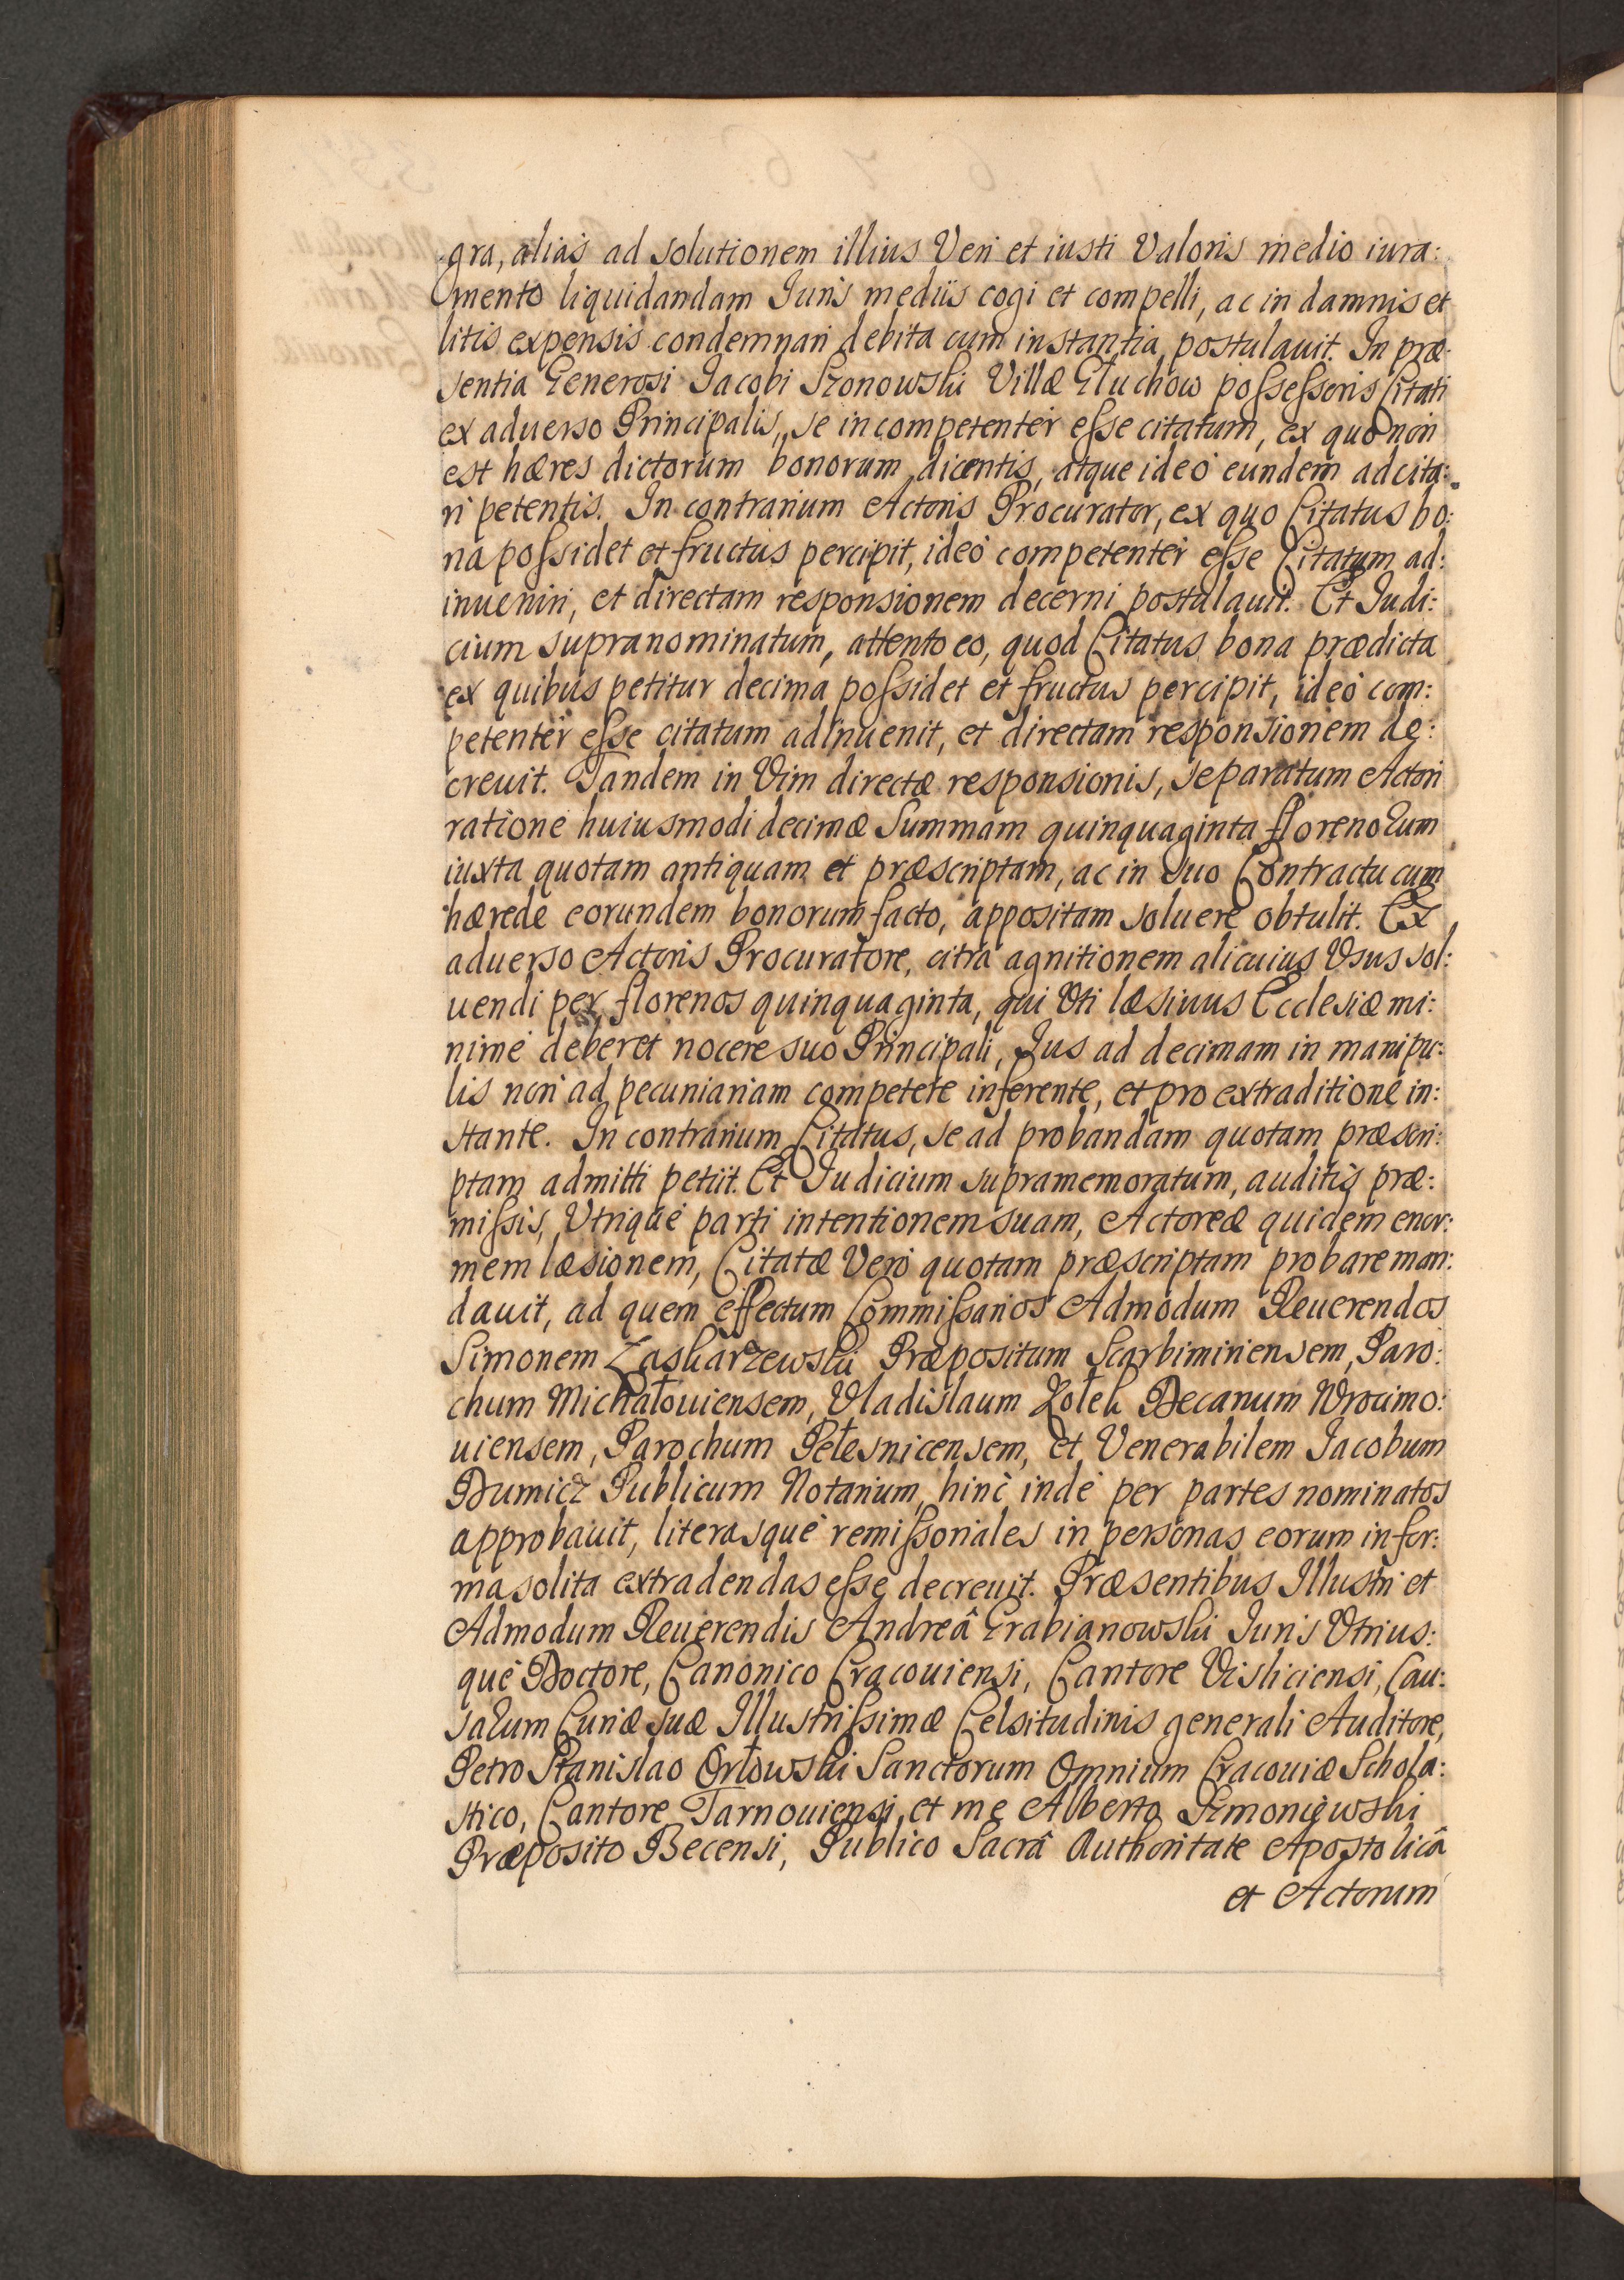 gra, aliàs ad solutionem illius Veri et iusti Valoris medio iura:
mento liquidandam Juris medijs cogi et compelli, ac in damnis et
litis expensis condemnari debita cum instantia postulauit. In præ:
sentia Generosi Jacobi Szonowski Villæ Głuchow possessoris Citati
ex aduerso Principalis, se incompetentèr esse citatum, ex quo non
est hæres dictorum bonorum dicentis, atque ideò eundem adcita:
ri petentis. In contrarium Actoris Procurator, ex quo Citatus bo:
na possidet et fructus percipit, ideò competentèr esse Citatum ad:
inueniri, et directam responsionem decerni postulauit. Et Judi:
cium supranominatum, attento eo, quod Citatus bona prædicta
ex quibus petitur decima possidet et fructus percipit, ideò com:
petentèr esse citatum adinuenit, et directam responsionem de:
creuit. Tandem in Vim directæ responsionis, se paratum Actori
ratione huiusmodi decimæ Summam quinquaginta florenorum
iuxta quotam antiquam et præscriptam, ac in suo Contractu cum
hærede eorundem bonorum facto, appositam soluere obtulit. Ex
aduerso Actoris Procuratore, citra agnitionem alicuius Vsus sol:
uendi per florenos quinquaginta, qui Vti læsiuus Ecclesiæ mi:
nimè deberet nocere suo Principali, Jus ad decimam in manipu:
lis non ad pecuniariam competere inferente, et pro extraditione in:
stante. In contrarium Citatus, se ad probandam quotam præscri:
ptam admitti petijt. Et Judicium supramemoratum, auditis præ:
missis, Vtrique parti intentionem suam, Actoreæ quidem enor:
mem læsionem, Citatæ Verò quotam præscriptam probare man:
dauit, ad quem effectum Commissarios Admodum Reuerendos
Simonem Zaskarzewski Præpositum Scarbimiriensem, Paro:
chum Michałouiensem, Vladislaum Zołek Decanum Wrocimo:
uiensem, Parochum Pełesnicensem, et Venerabilem Jacobum
Dumicz Publicum Notarium, hinc indè per partes nominatos
approbauit, literasque remissoriales in personas eorum in for:
ma solita extradendas esse decreuit. Præsentibus Illustri et
Admodum Reuerendis Andreâ Grabianowski Juris Vtrius:
que Doctore, Canonico Cracouiensi, Cantore Visliciensi, Cau:
sarum Curiæ suæ Illustrissimæ Celsitudinis generali Auditore,
Petro Stanislao Orłowski Sanctorum Omnium Cracouiæ Schola:
stico, Cantore Tarnouiensi, et me Alberto Simoniewski
Præposito Becensi, Publico Sacrâ Authoritate Apostolicâ
et Actorum